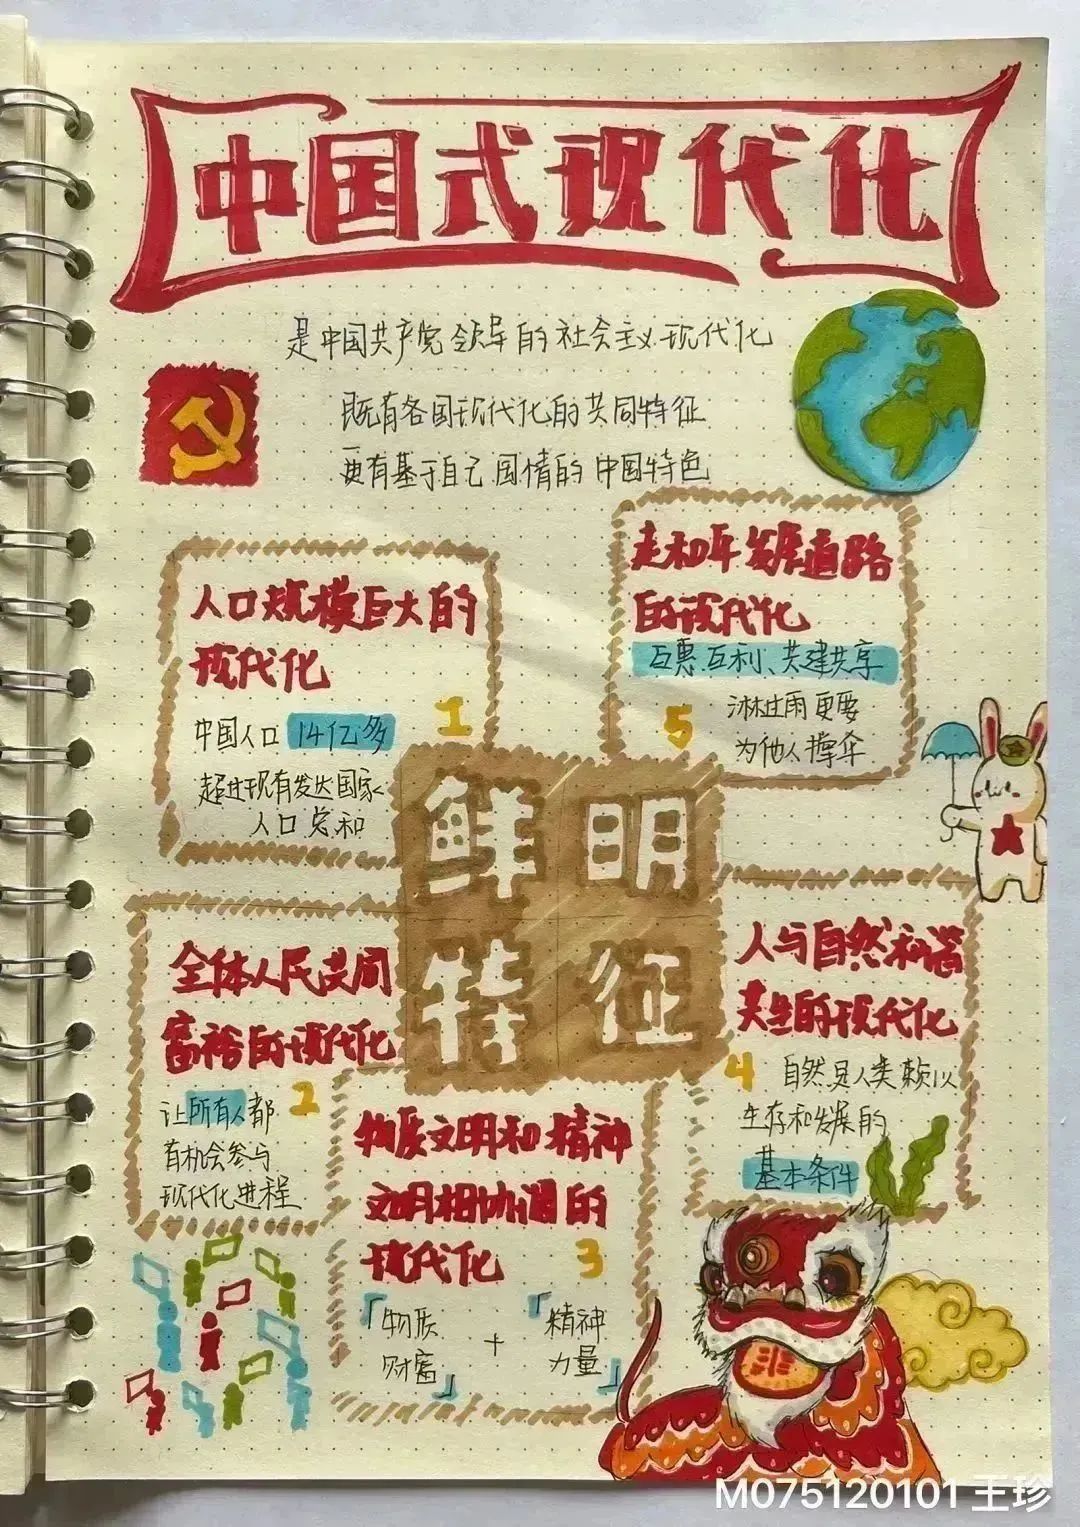 中国式现代化
是中国共产党领导的社会主义现代化
既有各国现代化的共同特征
更有基于自己国情的中国特色
人口规模巨大的
现代化
1
中国人口14亿多
超过现有发达国家
人口总和
走和平发展道路
的现代化
互惠互利、共建共享
5
淋过雨更要
为他人撑伞
鲜明
特征
全体人民共同
富裕的现代化
2
让所有人都
有机会参与
现代化进程
物质文明和精神
文明相协调的
现代化
3
「物质
财富」
+
「精神
力量」
人与自然和谐
共生的现代化
4
自然是人类赖以
生存和发展的
基本条件
M075120101 王珍